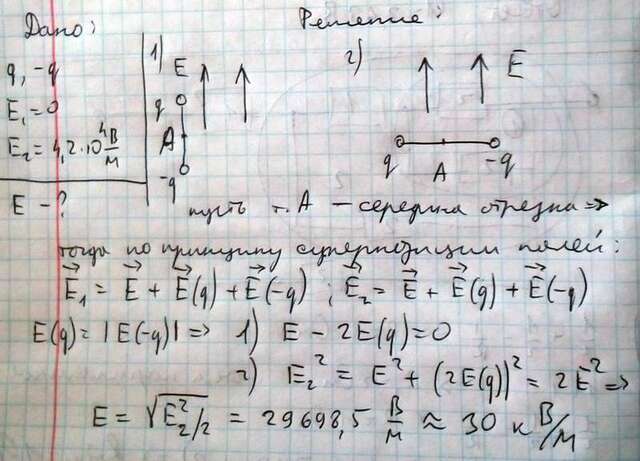 Дано:
q, -q
E₁ = 0
E₂ = 4,2·10⁴ В/м
E - ?
Решение:
1) E
q
A
-q
2) E
q A -q
пусть т. A – середина отрезка ⇒
тогда по принципу суперпозиции полей:
E⃗₁ = E⃗ + E⃗(q) + E⃗(-q) ; E⃗₂ = E⃗ + E⃗(q) + E⃗(-q)
E(q) = |E(-q)| ⇒ 1) E - 2E(q) = 0
2) E₂² = E² + (2E(q))² = 2E² ⇒
E = √E₂²/2 = 29698,5 В/м ≈ 30 кВ/м